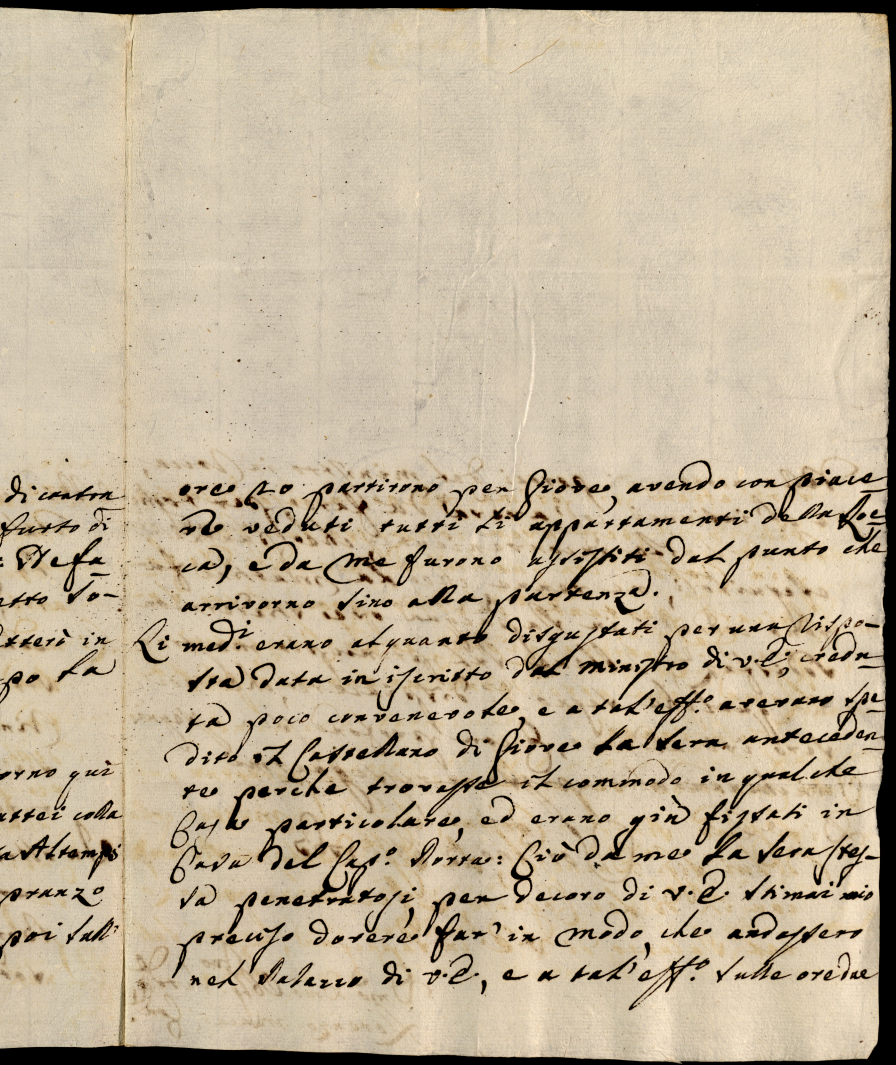 di contra
furto di
to-
po la
orno qui
colla
Altemps
pranzo
poi sull'
ore 20 partirono per Giove, avendo con piace-
re veduti tutti li appartamenti della Roc-
ca, e da me furono assistiti dal punto che
arrivorno sino alla partenza.
Li med.i erano alquanto disgustati per una rispo-
sta data in iscritto dal ministro di V.E., credu-
ta poco convenevole, e a tal'eff.o avevano spe-
dito il Castellano di Giove la sera anteceden-
te perche trovasse il commodo in qualche
Casa particolare, ed erano già fissati in
Casa del Cap.o Ciò da me la sera stes-
sa penetratosi, per decoro di V.E. stimai mio
preciso dovere far' in modo, che andassero
nel Palazzo di V.E., e a tal'eff.o sulle ore due